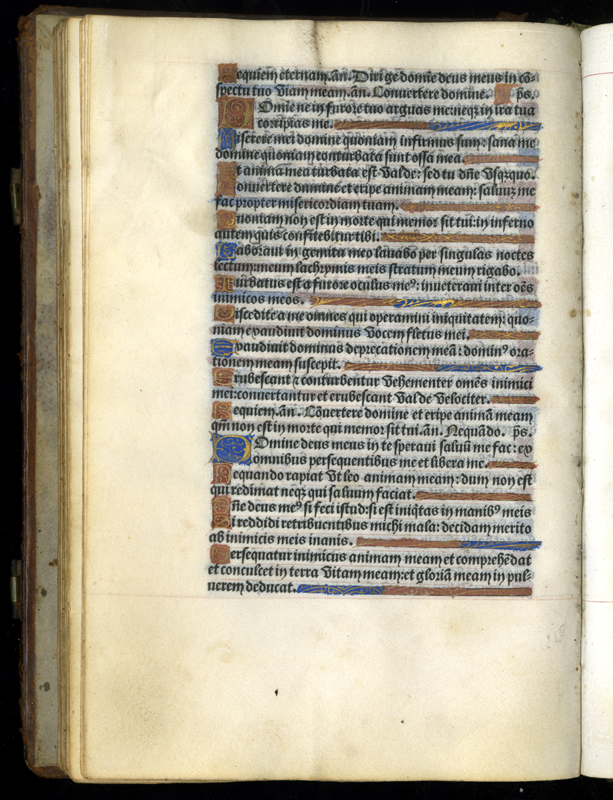 Requiem eternam. an. Dirige domine deus meus in cō-
spectu tuo viam meam. an. Convertere domine. ps.
Domine ne in furore tuo arguas me: neqz in ira tua
corripias me.
Miserere mei domine quoniam infirmus sum: sana me
domine quoniam conturbata sunt ossa mea.
Et anima mea turbata est valde: sed tu dñe vsqzquo.
Convertere domine et eripe animam meam: saluuz me
fac propter misericordiam tuam.
Quoniam non est in morte qui memor sit tui: in inferno
autem quis confitebitur tibi.
Laboraui in gemitu meo lauabo per singulas noctes
lectum meum lachrymis meis stratum meum rigabo.
Turbatus est a furore oculus me⁹: inueteraui inter oēs
inimicos meos.
Discedite a me omnes qui operamini iniquitatem: quo-
niam exaudiuit dominus vocem fletus mei.
Exaudiuit dominus deprecationem meā: domin⁹ ora-
tionem meam suscepit.
Erubescant ⁊ conturbentur vehementer omēs inimici
mei: convertantur et erubescant valde velociter.
Requiem. an. Cōuertere domine et eripe animā meam
qm̄ non est in morte qui memor sit tui. an. Nequādo. ps.
Domine deus meus in te speraui saluū me fac: ex
omnibus persequentibus me et libera me.
Nequando rapiat vt leo animam meam: dum non est
qui redimat neqz qui saluum faciat.
Dñe deus me⁹ si feci istud: si est iniqtas in manib⁹ meis
Si reddidi retribuentibus michi mala: decidam merito
ab inimicis meis inanis.
Persequatur inimicus animam meam et comprehēdat
et conculcet in terra vitam meam: et gloriā meam in pul-
uerem deducat.